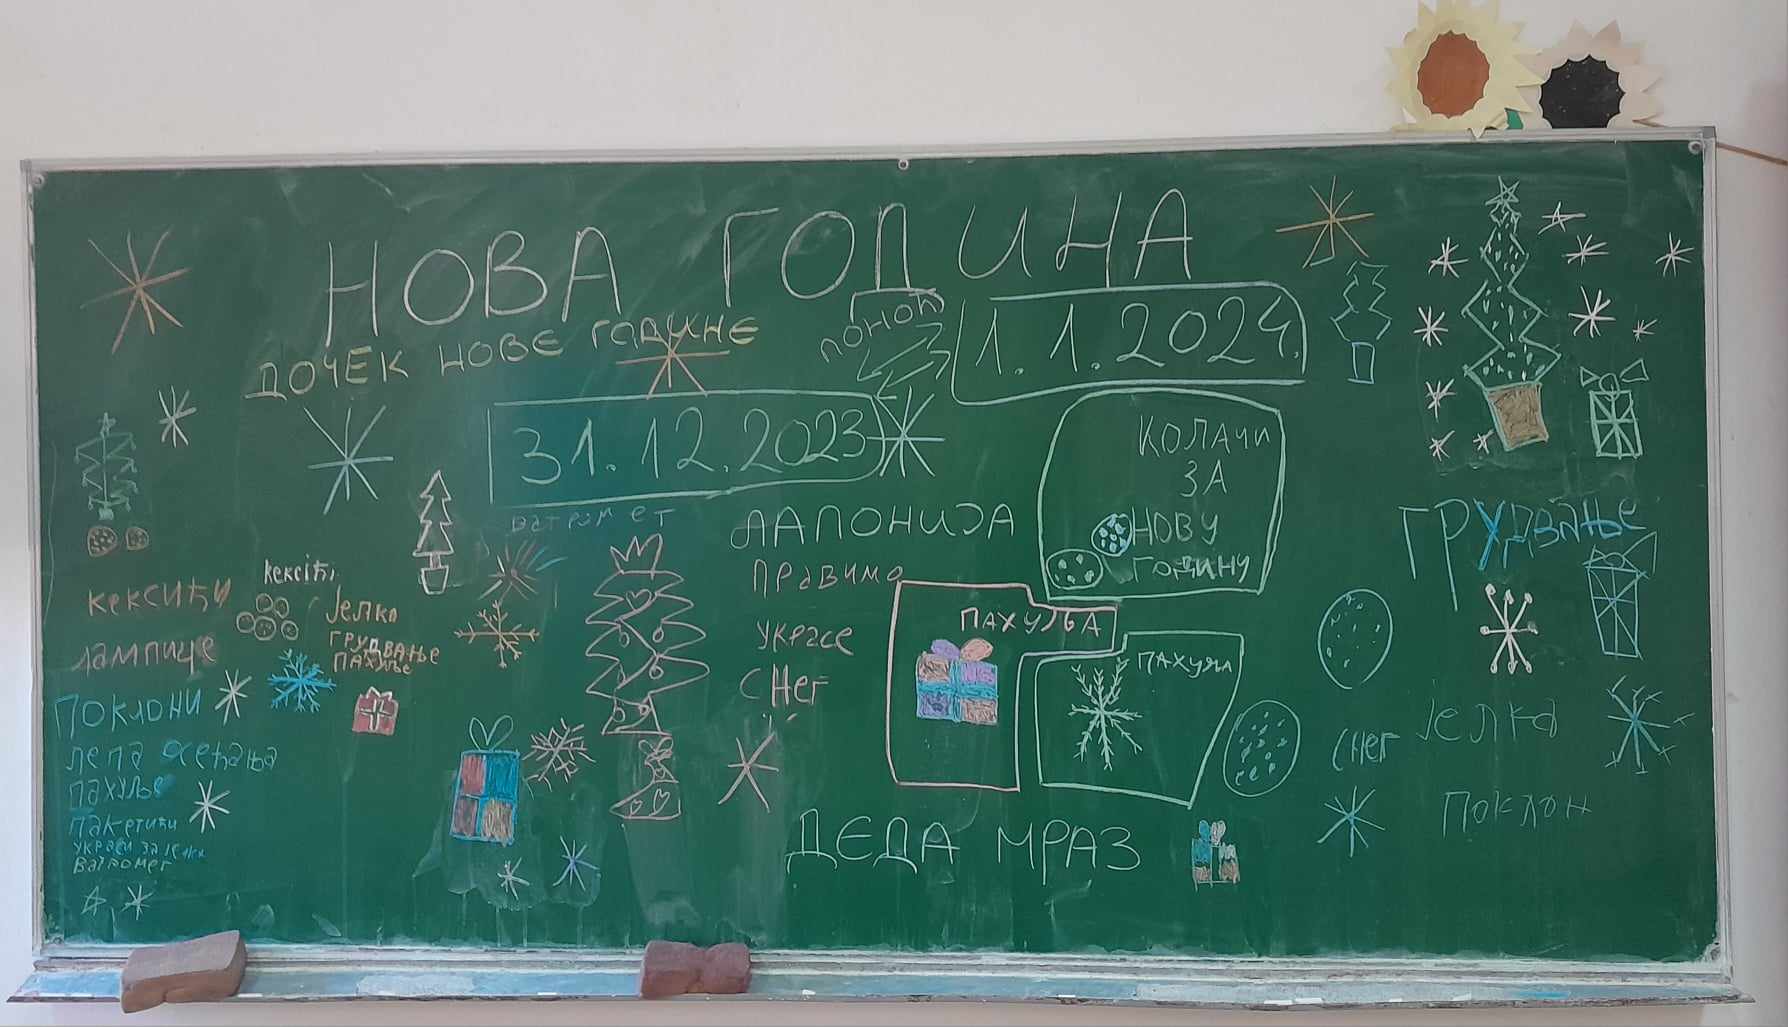 НОВА ГОДИНА
ДОЧЕК НОВЕ ГОДИНЕ
ПОНОЋ
1.1.2024.
31.12.2023
ватромет
ЛАПОНИЈА
Правимо
украсе
СНЕГ
КОЛАЧИ
ЗА
НОВУ
ГОДИНУ
ПАХУЉА
ПАХУЉА
ДЕДА МРАЗ
ГРУДВАЊЕ
СНЕГ
Јелка
Поклон
кексићи
кексићи
Јелка
ГРУДВАЊЕ
ПАХУЉЕ
лампице
ПОКЛОНИ
лепа осећања
пахуље
пакетићи
украси за јелку
Ватромет